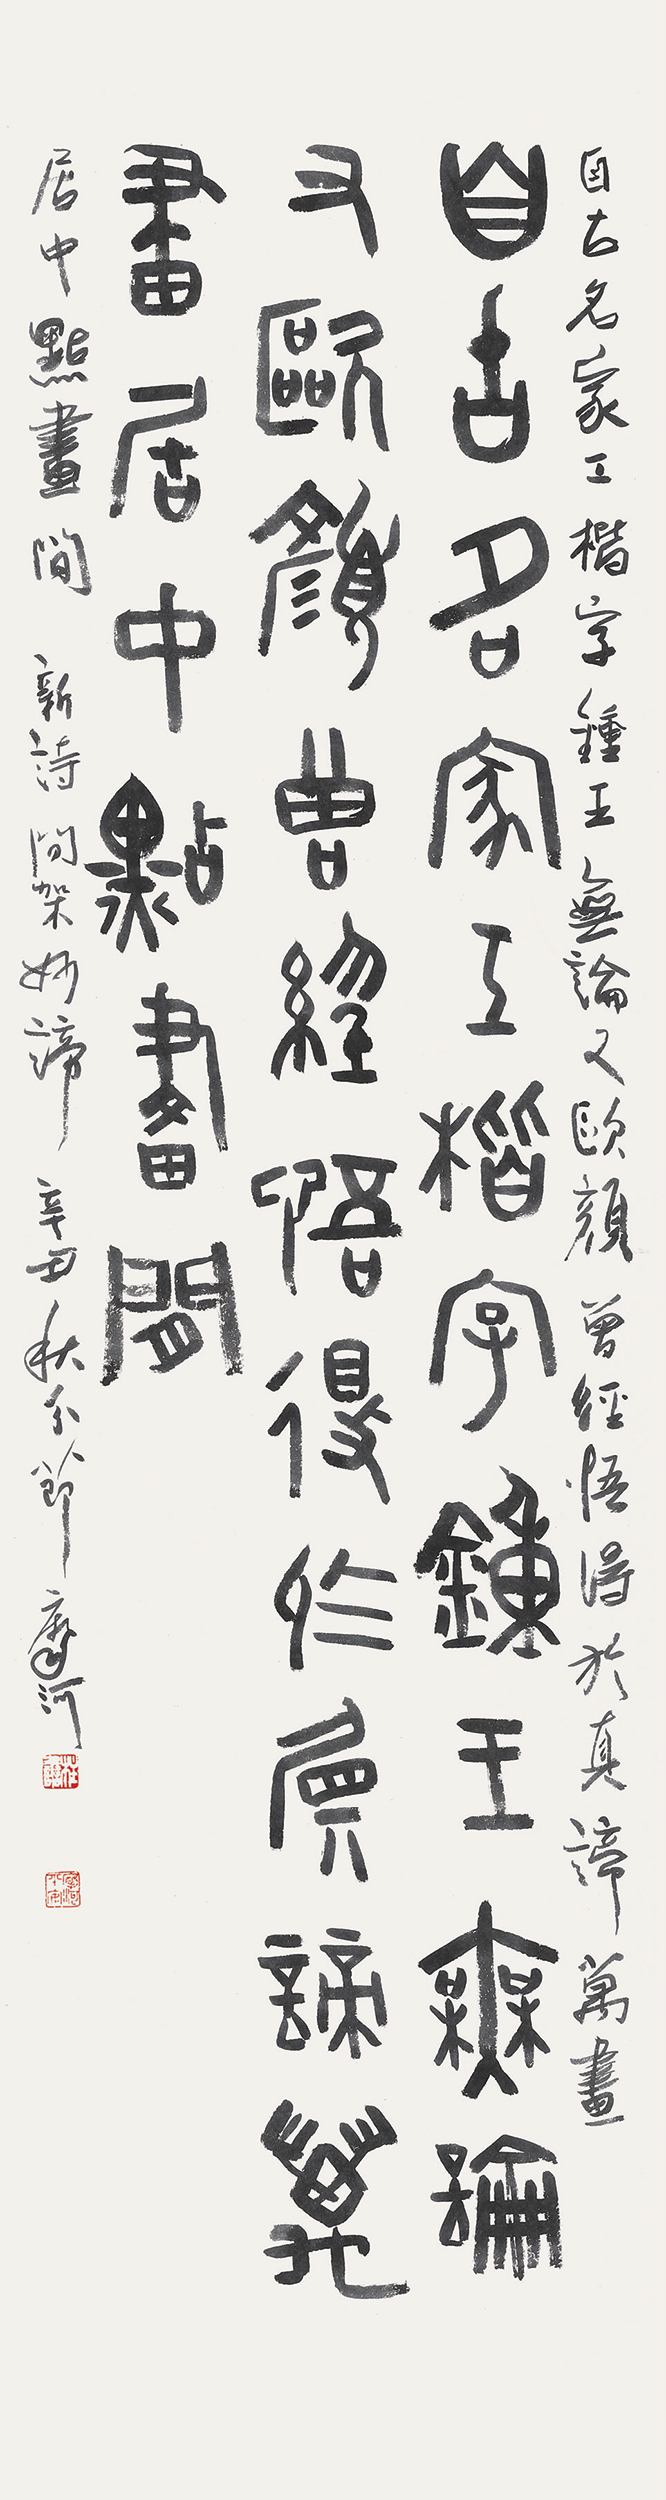 自古名家工楷字鍾王無論又歐顔曾經悟得於真諦萬畫
自古名家工楷字鍾王無論
又歐顔曾經悟得於真諦萬
畫居中點畫間
居中點畫間 新詩間架妙諦 辛丑秋分節 摩河